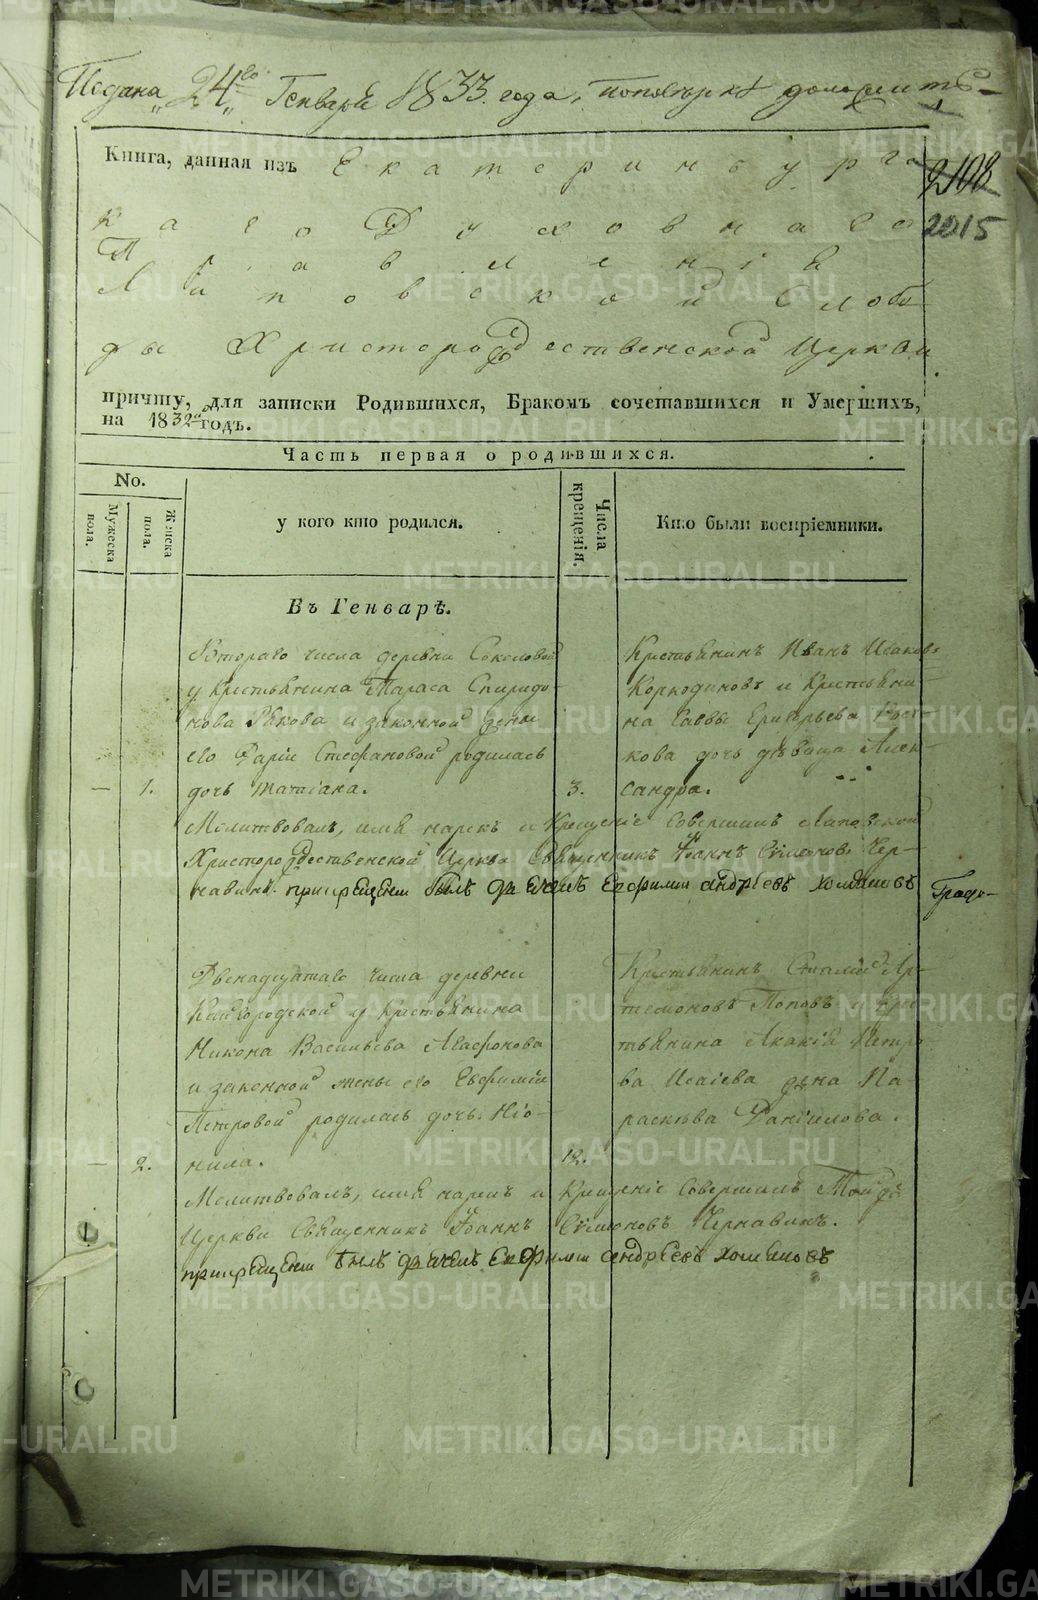 Подана 24го Генваря 1833. года, поповѣркѣ доложить
Книга, данная изъ Екатеринбургс
2108
каго Духовнаго
2015
Правленія
Липовской Слобо
ды Христорождественской Церкви
причту, для записки Родившихся, Бракомъ сочетавшихся и Умершихъ,
на 1832й годъ.
Часть первая о родившихся.
No.
Мужеска пола.
Женска пола.
у кого кто родился.
Числа крещенія.
Кто были воспріемники.
Въ Генварѣ.
Втораго числа деревни Соколовой
у Крестьянина Тараса Спиридо-
нова Рякова и законной жены
его Дарьи Стефановой родилась
— 1. дочь Татіана. 3.
Крестьянинъ Иванъ Исаковъ
Коркодиновъ и Крестьяни-
на Саввы Григорьева
кова дочь дѣвица Алек-
сандра.
Молитвовалъ, имя нарекъ и Крещеніе Совершилъ Липовской
Христорождественской Церкви Священникъ Іоаннъ Симеоновъ Чер-
навинъ. прикрещеніи былъ дьячекъ Евфимій андреевъ хомяковъ
Двенадцатаго числа деревни
Кайгородской у Крестьянина
Никона Васильева Агафонова
и законной жены его Евфиміи
Петровой родилась дочь Ніо-
— 2. нила. 12.
Крестьянинъ Ар-
темоновъ Поповъ и Кре-
стьянина Акакія Петро-
ва Исаева жена Па-
раскева Даніилова.
Молитвовалъ, имя нарекъ и Крещеніе Совершилъ Тойже
Церкви Священникъ Іоаннъ Симеоновъ Чернавинъ.
прикрещеніи былъ дьячекъ Евфимій андреевъ хомяковъ
METRIKI.GASO-URAL.RU